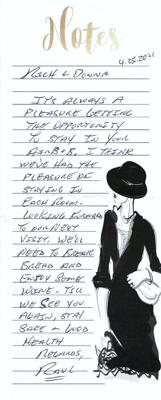 Notes
4.25.2021
RICH & DONNA
IT'S ALWAYS A
PLEASURE GETTING
THE OPPORTUNITY
TO STAY IN YOUR
AIRB+B. I THINK
WE'VE HAD THE
PLEASURE OF
STAYING IN
EACH ROOM.
LOOKING FORWARD
TO OUR NEXT
VISIT. WE'LL
NEED TO BREAK
BREAD AND
ENJOY SOME
WINE. TILL
WE SEE YOU
AGAIN, STAY
SAFE & GOOD
HEALTH
REGARDS,
RAUL